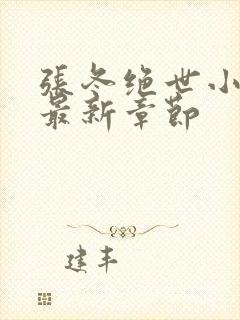 張冬绝世小
最新章節
建丰